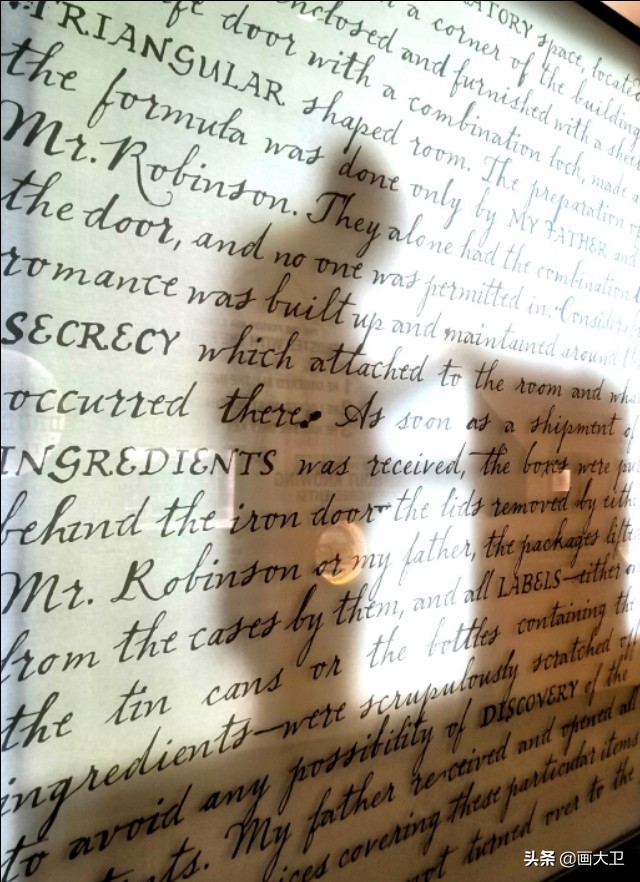 ATORY space, located
in a corner of the building
enclosed and furnished with a sheet
safe door with a combination lock, made a
TRIANGULAR shaped room. The preparation of
the formula was done only by MY FATHER and
Mr. Robinson. They alone had the combination
the door, and no one was permitted in. Considerable
romance was built up and maintained around the
SECRECY which attached to the room and what
occurred there. As soon as a shipment of
INGREDIENTS was received, the boxes were put
behind the iron door the lids removed by either
Mr. Robinson or my father, the packages lifted
from the cases by them, and all LABELS—either on
the tin cans or the bottles containing the
ingredients—were scrupulously scratched off
to avoid any possibility of DISCOVERY of the
My father received and opened all
covering these particular items
not turned over to the
头条 @画大卫